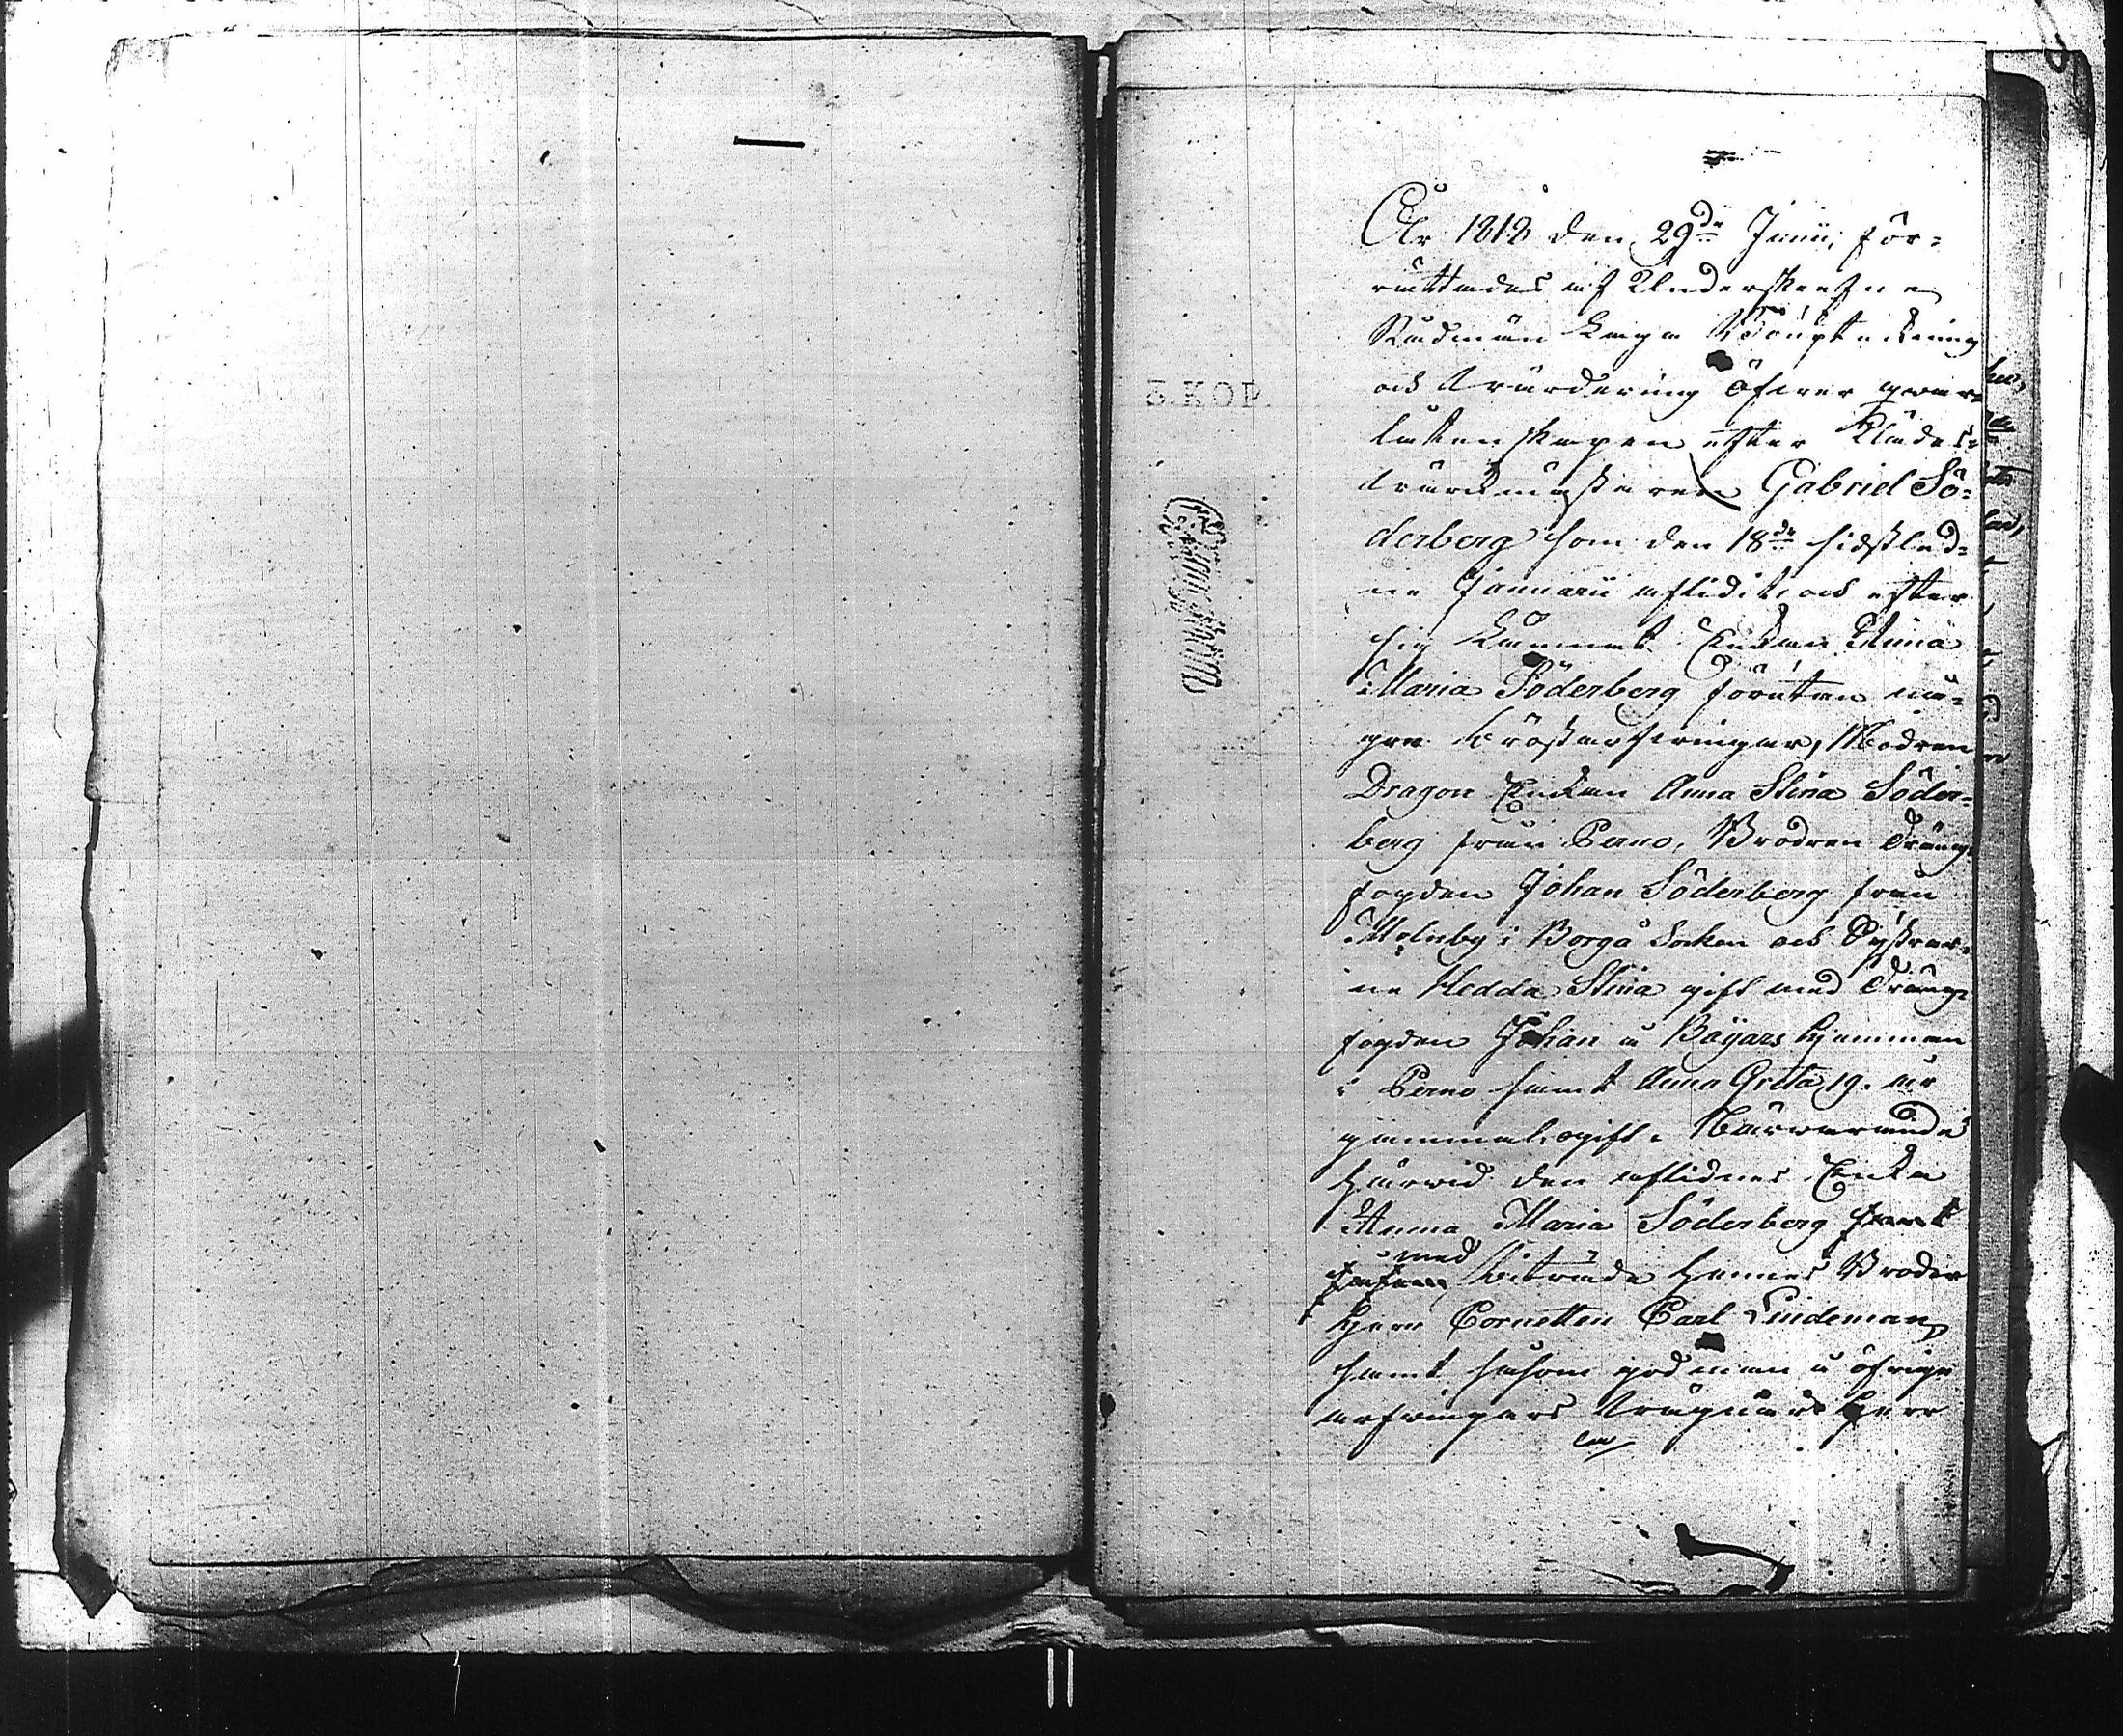 5. KOP.
År 1818 den 29de Junii, för=
rättades af Underskrefne
Rådmän laga Bouptekning
och värdering öfver qvar=
låtenskapen efter Klädes=
väfvmästaren Gabriel Sö=
derberg som den 18de sidstled=
ne Januarii aflidit och efter
sig lämnat Enkan Anna
Maria Söderberg förutan nå=
gra bröstarfvingar, Modren
Dragon Enkan Anna Stina Söder=
berg från Perno, Brodren Dräng
fogden Johan Söderberg från
Molnby i Borgå Socken och Systrar=
ne Hedda Stina gift med Dräng=
fogden Johan å Bägars hemman
i Perno samt Anna Greta 19. år
gammal, ogift. Närvarande
härvid den aflidnes Enka
Anna Maria Söderberg
med
biträde hennes Broder
Herr Cornetten Carl Lindeman
samt såsom god man å öfrige
arfvingars vägnar Herr